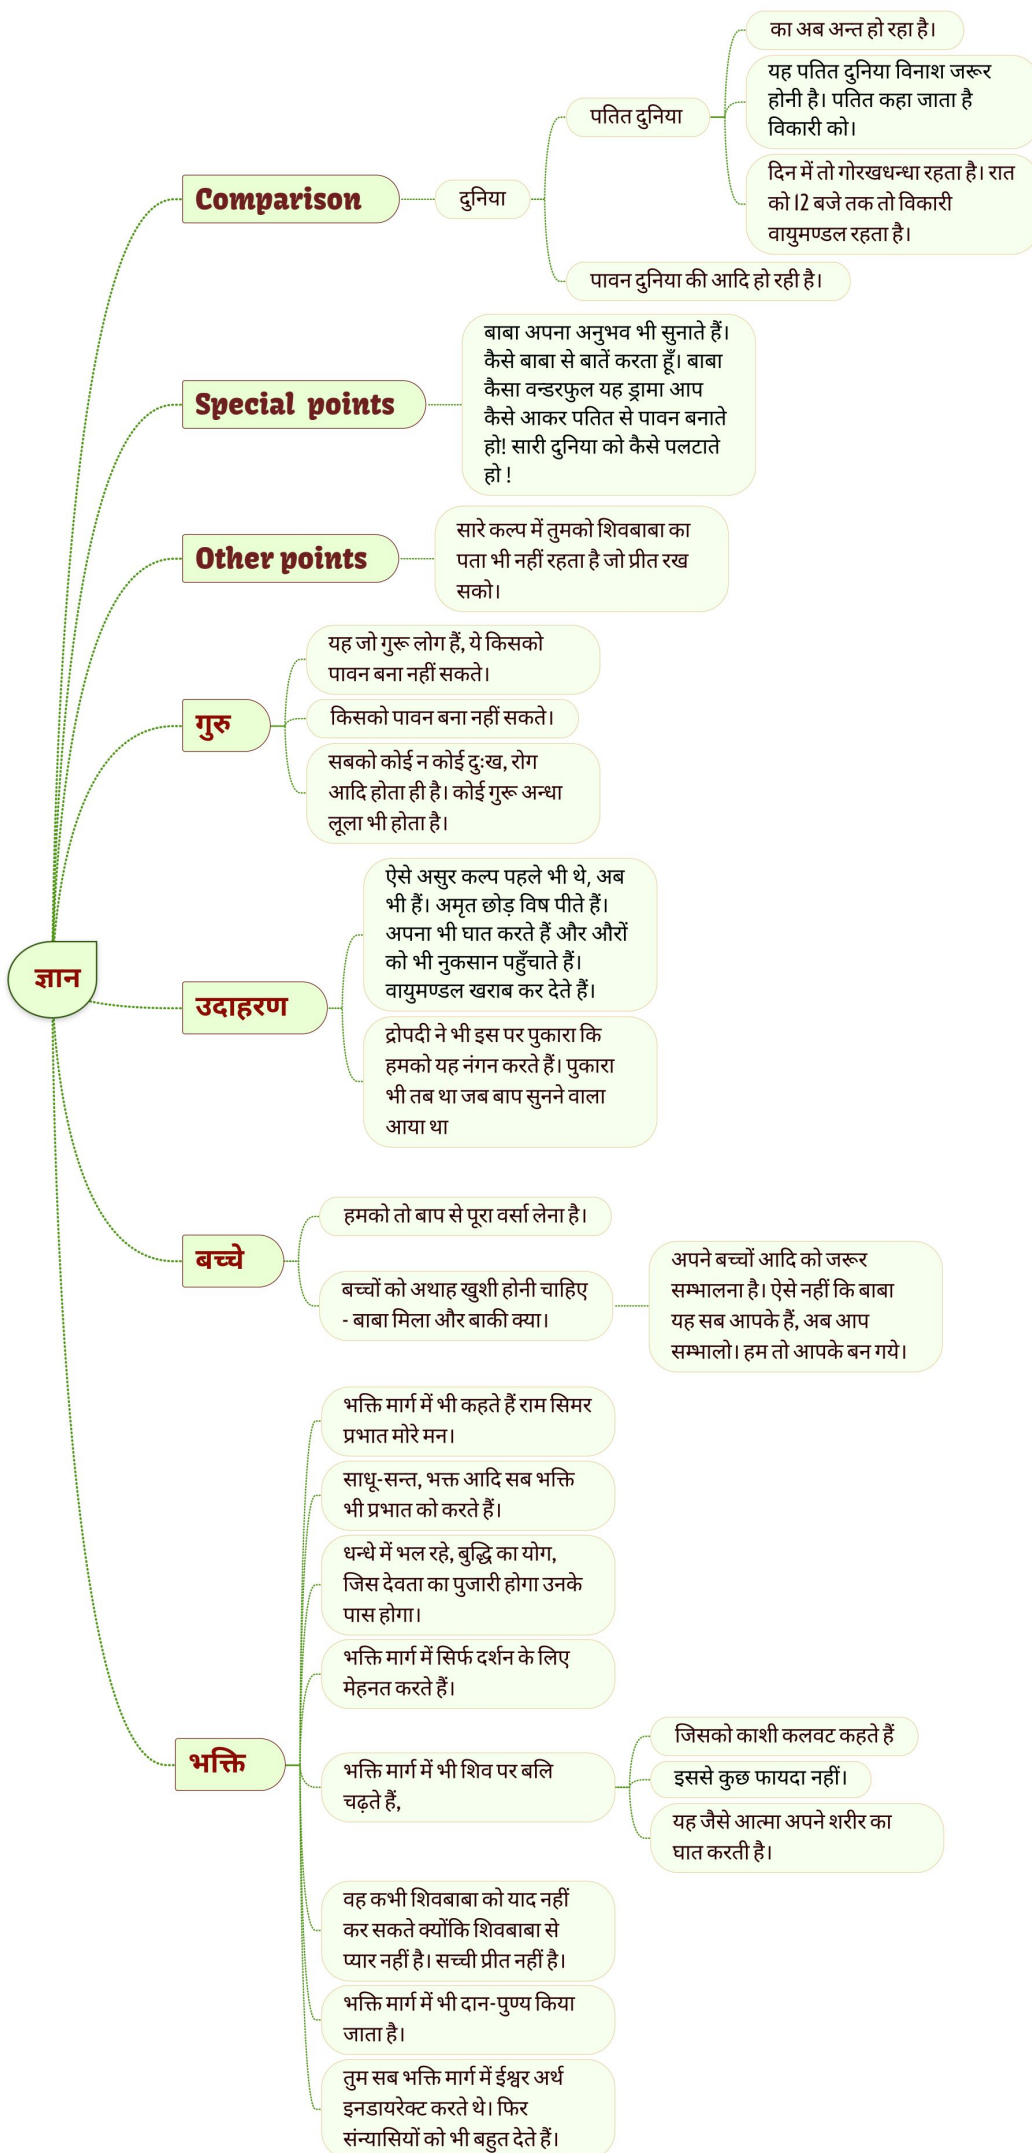 ज्ञान
Comparison
दुनिया
पतित दुनिया
का अब अन्त हो रहा है।
यह पतित दुनिया विनाश जरूर
होनी है। पतित कहा जाता है
विकारी को।
दिन में तो गोरखधन्धा रहता है। रात
को 12 बजे तक तो विकारी
वायुमण्डल रहता है।
पावन दुनिया की आदि हो रही है।
Special points
बाबा अपना अनुभव भी सुनाते हैं।
कैसे बाबा से बातें करता हूँ। बाबा
कैसा वन्डरफुल यह ड्रामा आप
कैसे आकर पतित से पावन बनाते
हो! सारी दुनिया को कैसे पलटाते
हो !
Other points
सारे कल्प में तुमको शिवबाबा का
पता भी नहीं रहता है जो प्रीत रख
सको।
गुरु
यह जो गुरू लोग हैं, ये किसको
पावन बना नहीं सकते।
किसको पावन बना नहीं सकते।
सबको कोई न कोई दुःख, रोग
आदि होता ही है। कोई गुरू अन्धा
लूला भी होता है।
उदाहरण
ऐसे असुर कल्प पहले भी थे, अब
भी हैं। अमृत छोड़ विष पीते हैं।
अपना भी घात करते हैं और औरों
को भी नुकसान पहुँचाते हैं।
वायुमण्डल खराब कर देते हैं।
द्रोपदी ने भी इस पर पुकारा कि
हमको यह नंगन करते हैं। पुकारा
भी तब था जब बाप सुनने वाला
आया था
बच्चे
हमको तो बाप से पूरा वर्सा लेना है।
बच्चों को अथाह खुशी होनी चाहिए
- बाबा मिला और बाकी क्या।
अपने बच्चों आदि को जरूर
सम्भालना है। ऐसे नहीं कि बाबा
यह सब आपके हैं, अब आप
सम्भालो। हम तो आपके बन गये।
भक्ति
भक्ति मार्ग में भी कहते हैं राम सिमर
प्रभात मोरे मन।
साधू-सन्त, भक्त आदि सब भक्ति
भी प्रभात को करते हैं।
धन्धे में भल रहे, बुद्धि का योग,
जिस देवता का पुजारी होगा उनके
पास होगा।
भक्ति मार्ग में सिर्फ दर्शन के लिए
मेहनत करते हैं।
भक्ति मार्ग में भी शिव पर बलि
चढ़ते हैं,
जिसको काशी कलवट कहते हैं
इससे कुछ फायदा नहीं।
यह जैसे आत्मा अपने शरीर का
घात करती है।
वह कभी शिवबाबा को याद नहीं
कर सकते क्योंकि शिवबाबा से
प्यार नहीं है। सच्ची प्रीत नहीं है।
भक्ति मार्ग में भी दान-पुण्य किया
जाता है।
तुम सब भक्ति मार्ग में ईश्वर अर्थ
इनडायरेक्ट करते थे। फिर
संन्यासियों को भी बहुत देते हैं।